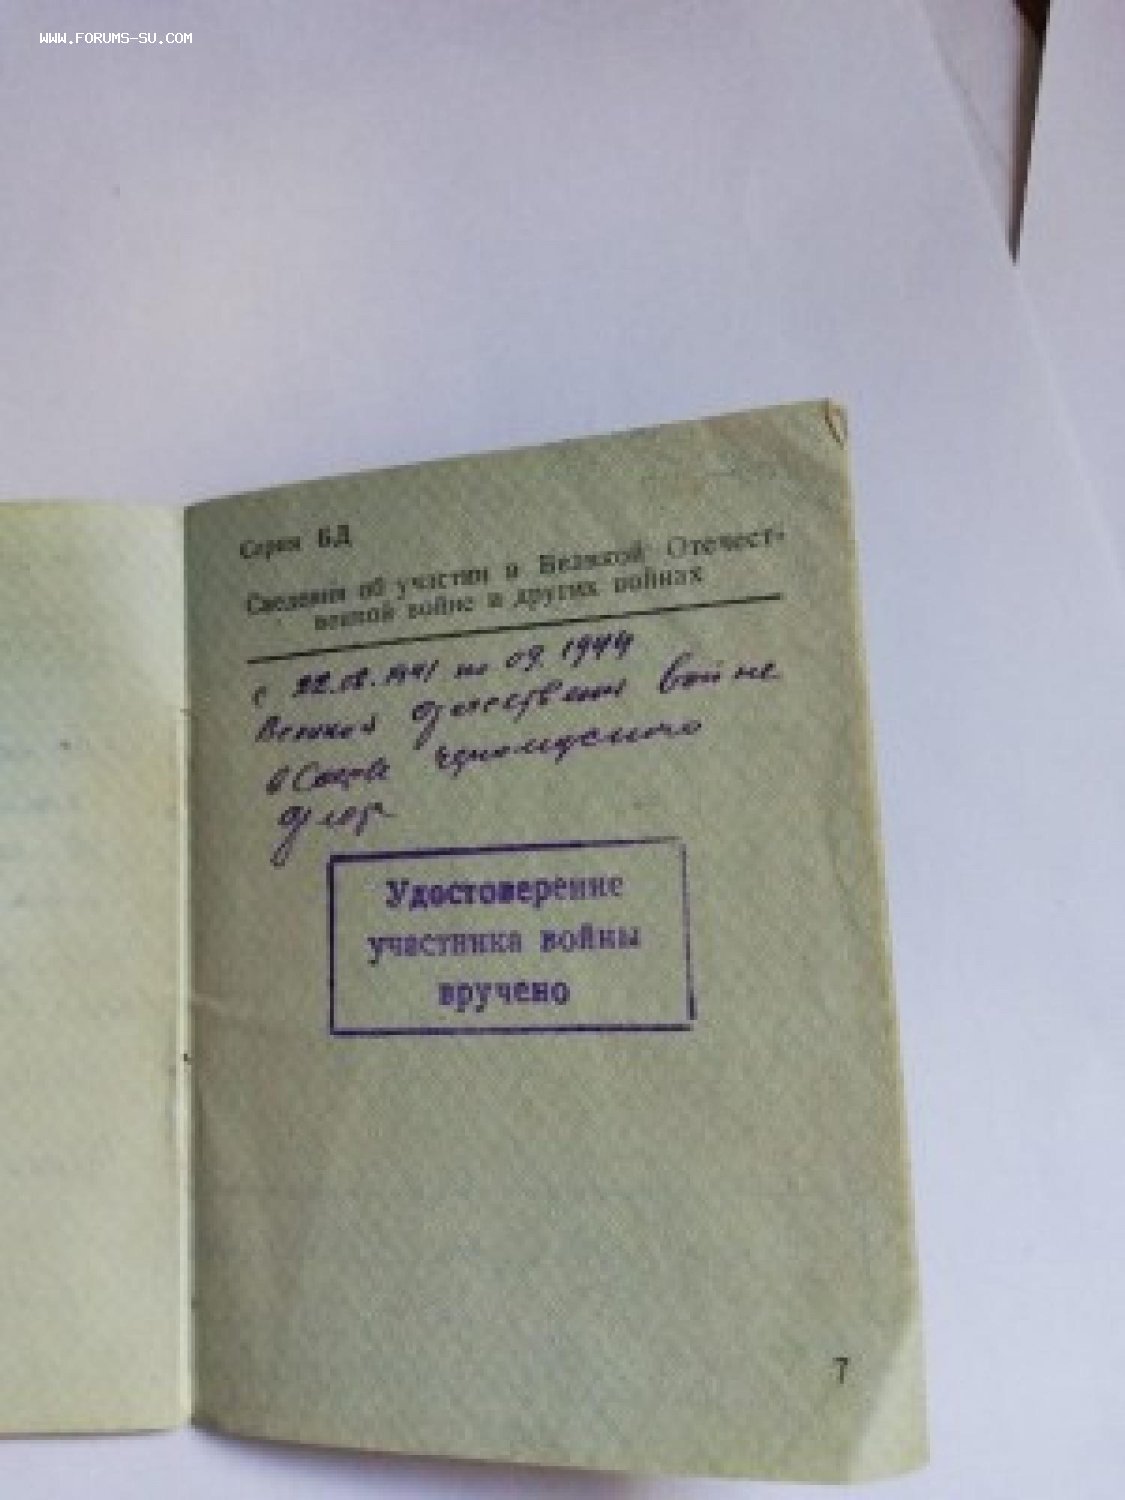 WWW.FORUMS-SU.COM
Серия БД
Сведения об участии в Великой Отечест-
венной войне и других войнах
с 22.08.1941 по 09.1944
Великой отечествен войне
в Составе черноморского
флот
Удостоверение
участника войны
вручено
7